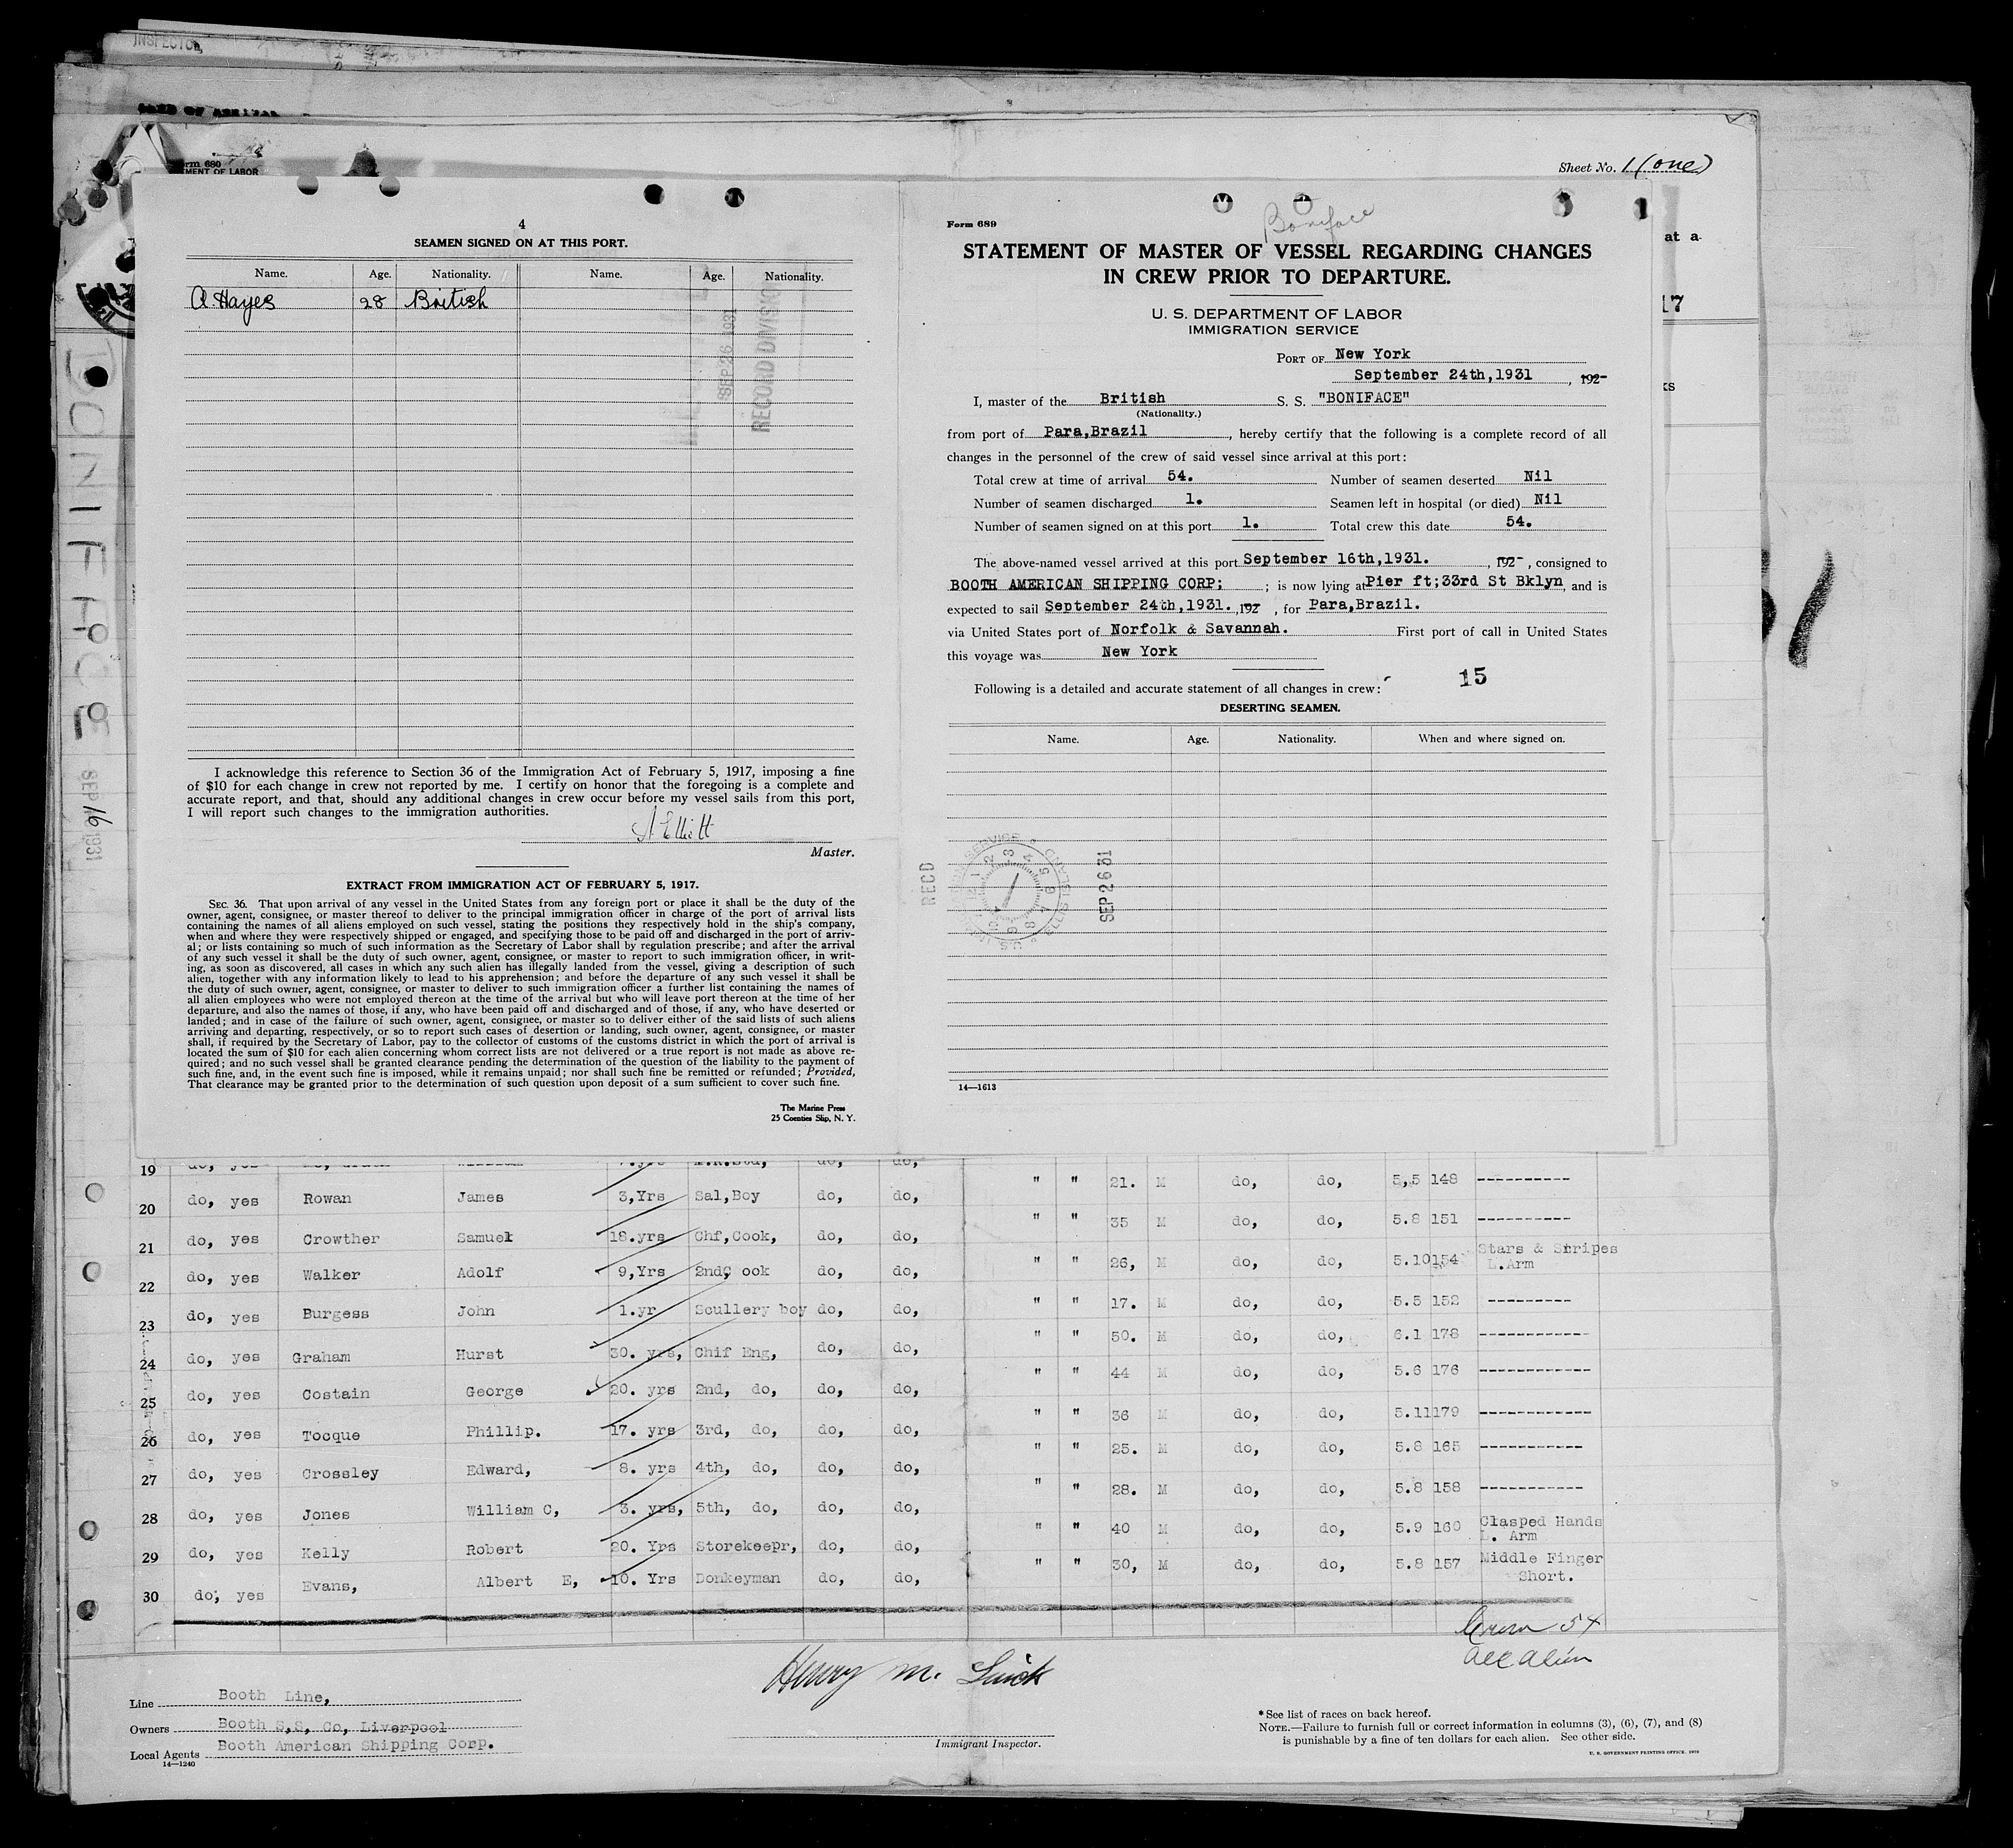 INSPECTOR,
Form 680
MENT OF LABOR
Sheet No. 1 (one)
at a
17
ks
BONIFACE
SEP 16 1931
4
SEAMEN SIGNED ON AT THIS PORT.
Name. Age. Nationality. Name. Age. Nationality.
A. Hayes 28 British
SEP 26 1931
RECORD DIVISION
I acknowledge this reference to Section 36 of the Immigration Act of February 5, 1917, imposing a fine
of $10 for each change in crew not reported by me. I certify on honor that the foregoing is a complete and
accurate report, and that, should any additional changes in crew occur before my vessel sails from this port,
I will report such changes to the immigration authorities.
A Elliott
Master.
EXTRACT FROM IMMIGRATION ACT OF FEBRUARY 5, 1917.
SEC. 36. That upon arrival of any vessel in the United States from any foreign port or place it shall be the duty of the
owner, agent, consignee, or master thereof to deliver to the principal immigration officer in charge of the port of arrival lists
containing the names of all aliens employed on such vessel, stating the positions they respectively hold in the ship's company,
when and where they were respectively shipped or engaged, and specifying those to be paid off and discharged in the port of arriv-
al; or lists containing so much of such information as the Secretary of Labor shall by regulation prescribe; and after the arrival
of any such vessel it shall be the duty of such owner, agent, consignee, or master to report to such immigration officer, in writ-
ing, as soon as discovered, all cases in which any such alien has illegally landed from the vessel, giving a description of such
alien, together with any information likely to lead to his apprehension; and before the departure of any such vessel it shall be
the duty of such owner, agent, consignee, or master to deliver to such immigration officer a further list containing the names of
all alien employees who were not employed thereon at the time of the arrival but who will leave port thereon at the time of her
departure, and also the names of those, if any, who have been paid off and discharged and of those, if any, who have deserted or
landed; and in case of the failure of such owner, agent, consignee, or master so to deliver either of the said lists of such aliens
arriving and departing, respectively, or so to report such cases of desertion or landing, such owner, agent, consignee, or master
shall, if required by the Secretary of Labor, pay to the collector of customs of the customs district in which the port of arrival is
located the sum of $10 for each alien concerning whom correct lists are not delivered or a true report is not made as above re-
quired; and no such vessel shall be granted clearance pending the determination of the question of the liability to the payment of
such fine, and, in the event such fine is imposed, while it remains unpaid; nor shall such fine be remitted or refunded; Provided,
That clearance may be granted prior to the determination of such question upon deposit of a sum sufficient to cover such fine.
The Marine Press
25 Coenties Slip, N. Y.
Form 689
Boniface
STATEMENT OF MASTER OF VESSEL REGARDING CHANGES
IN CREW PRIOR TO DEPARTURE.
U. S. DEPARTMENT OF LABOR
IMMIGRATION SERVICE
PORT OF New York
September 24th,1931, 192-
I, master of the British S. S. "BONIFACE"
(Nationality.)
from port of Para,Brazil, hereby certify that the following is a complete record of all
changes in the personnel of the crew of said vessel since arrival at this port:
Total crew at time of arrival 54. Number of seamen deserted Nil
Number of seamen discharged 1. Seamen left in hospital (or died) Nil
Number of seamen signed on at this port 1. Total crew this date 54.
The above-named vessel arrived at this port September 16th,1931. , 192-, consigned to
BOOTH AMERICAN SHIPPING CORP; ; is now lying at Pier ft;33rd St Bklyn, and is
expected to sail September 24th,1931. ,192 , for Para,Brazil.
via United States port of Norfolk & Savannah. First port of call in United States
this voyage was New York
15
Following is a detailed and accurate statement of all changes in crew:
DESERTING SEAMEN.
Name. Age. Nationality. When and where signed on.
RECD
SEP 26 31
14—1613
19
20 do, yes Rowan James 3,Yrs Sal,Boy do, do, " " 21. M do, do, 5,5 148 ----------
21 do, yes Crowther Samuel 18.yrs Chf,Cook, do, do, " " 35 M do, do, 5.8 151 ----------
22 do, yes Walker Adolf 9,Yrs 2nd, C ook do, do, " " 26, M do, do, 5.10 154 Stars & Stripes
L.Arm
23 do, yes Burgess John 1.yr Scullery boy do, do, " " 17. M do, do, 5.5 152 ---------
24 do, yes Graham Hurst 30. yrs, Chif Eng, do, do, " " 50. M do, do, 6.1 178 ------------
25 do, yes Costain George 20. yrs 2nd, do, do, do, " " 44 M do, do, 5.6 176 ------------
26 do, yes Tocque Phillip. 17. yrs 3rd, do, do, do, " " 36 M do, do, 5.11 179 ------------
27 do, yes Crossley Edward, 8. yrs 4th, do, do, do, " " 25. M do, do, 5.8 165 -----------
28 do, yes Jones William C, 3. yrs, 5th, do, do, do, " " 28. M do, do, 5.8 158 -----------
29 do, yes Kelly Robert 20. Yrs Storekeepr, do, do, " " 40 M do, do, 5.9 160 Clasped Hands
L. Arm
30 do; yes Evans, Albert E, 10. Yrs Donkeyman do, do, " " 30, M do, do, 5.8 157 Middle Finger
Short.
Crew 54
all alien
Line Booth Line,
Owners Booth S,S, Co, Liverpool
Local Agents Booth American Shipping Corp.
14—1240
Henry M.
Immigrant Inspector.
* See list of races on back hereof.
NOTE.—Failure to furnish full or correct information in columns (3), (6), (7), and (8)
is punishable by a fine of ten dollars for each alien. See other side.
U. S. GOVERNMENT PRINTING OFFICE